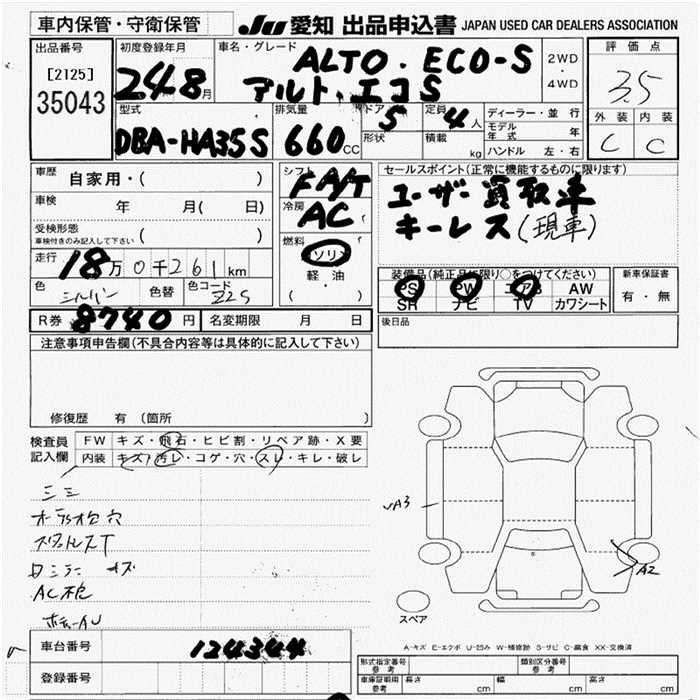 車内保管・守衛保管
JU 愛知 出品申込書 JAPAN USED CAR DEALERS ASSOCIATION
出品番号
[2125]
35043
初度登録年月
24 8月
車名・グレード
ALTO・ECO-S
アルト・エコS
2WD
・
4WD
評価点
3.5
外装 内装
C C
型式
DBA-HA35S
排気量
660cc
ドア
5
形状
定員
4人
積載
kg
ディーラー・並行
モデル年式 年
ハンドル 左・右
車歴 自家用・( )
車検 年 月( 日)
受検形態
車検付きのみ記入して下さい ( )
走行 18万0千261km
色 シルバー 色替 色コード Z2S
シフト
FA/T
冷房
AC
燃料
ガソリン
軽油
( ・ )
セールスポイント(正常に機能するものに限ります)
ユーザー買取車
キーレス(現車)
装備品(純正品に限り○をつけてください)
PS PW エアB AW
SR ナビ TV カワシート
新車保証書
有・無
R券 8740円 名変期限 月 日
後日品
注意事項申告欄(不具合内容等は具体的に記入して下さい)
修復歴 有(箇所
検査員記入欄
FW キズ・飛石・ヒビ割・リペア跡・X要
内装 キズ・汚レ・コゲ・穴・スレ・キレ・破レ
シミ
AC
A3
A2
スペア
A-キズ E-エクボ U-凹み W-補修跡 S-サビ C-腐食 XX-交換済
車台番号 124344
登録番号
形式指定番号 参考
類別区分番号 参考
車庫証明用 参考 長さ cm 幅 cm 高さ cm